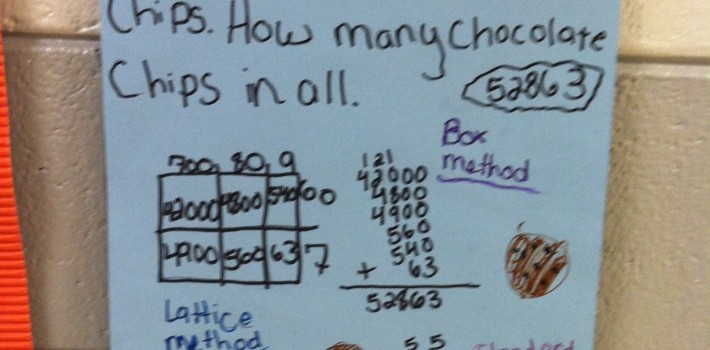 Chips. How many chocolate
Chips in all.
52863
Box
method
700, 80, 9
42000 4800 540 60
4900 560 63 7
121
42000
4800
4900
560
540
+ 63
52863
Lattice
method
55
Standard